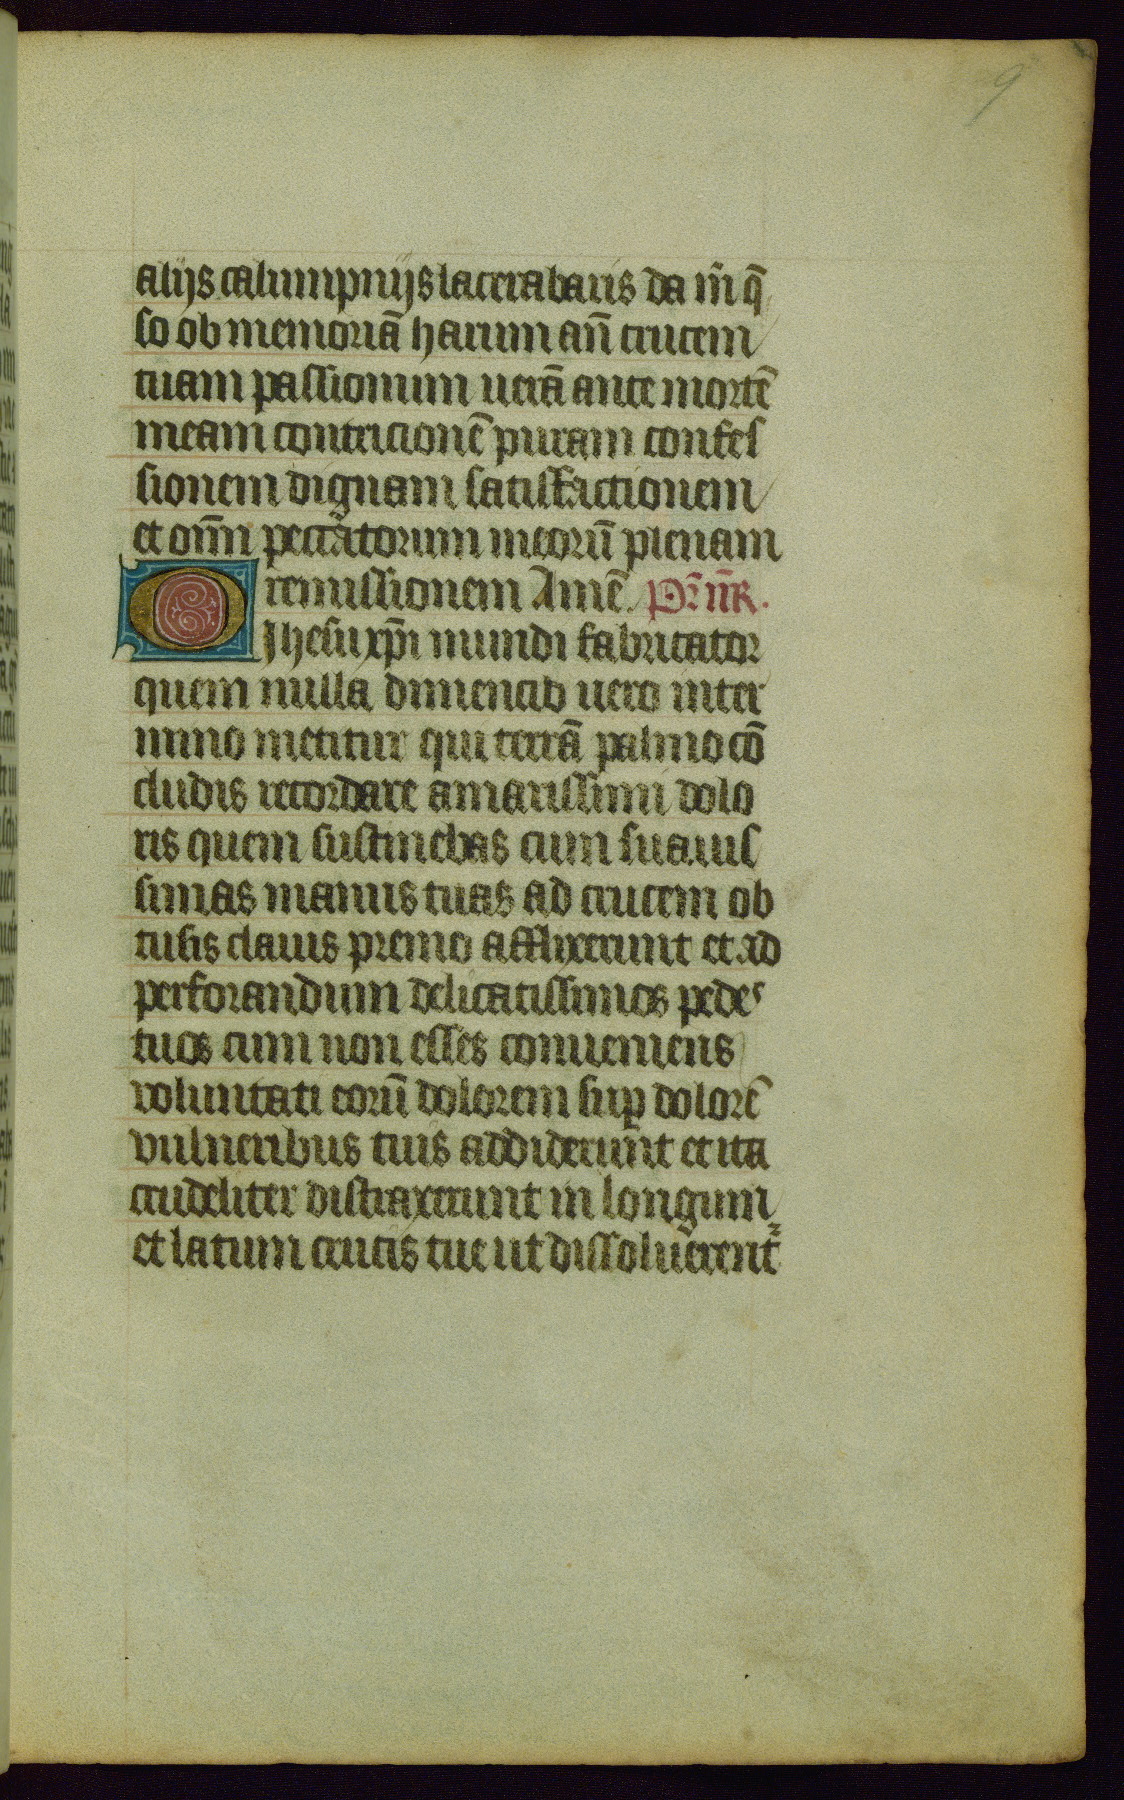 9
alijs calumpnijs lacerabaris da m̄ q̄
so ob memoriā harum an̄ crucem
tuam passionum uerā ante mortē
meam contricionē puram confes
sionem dignam satisfactionem
et om̄i peccatorum meorū plenam
remissionem Amē. Pr̄ nr̄.
O Jhesu xp̄i mundi fabricator
quem nulla dimencio uero inter
mino metitur qui terrā palmo cō
cludis recordare amarissimi dolo
ris quem sustinebas cum suauis
simas manus tuas ad crucem ob
tusis clauis premo afflixerunt et ad
perforandum delicatissimos pedes
tuos cum non esses conueniens
voluntati eorū dolorem sup̱ dolorē
vulneribus tuis addiderunt et ita
crudeliter distraxerunt in longum
et latum crucis tue ut dissoluerent᷑